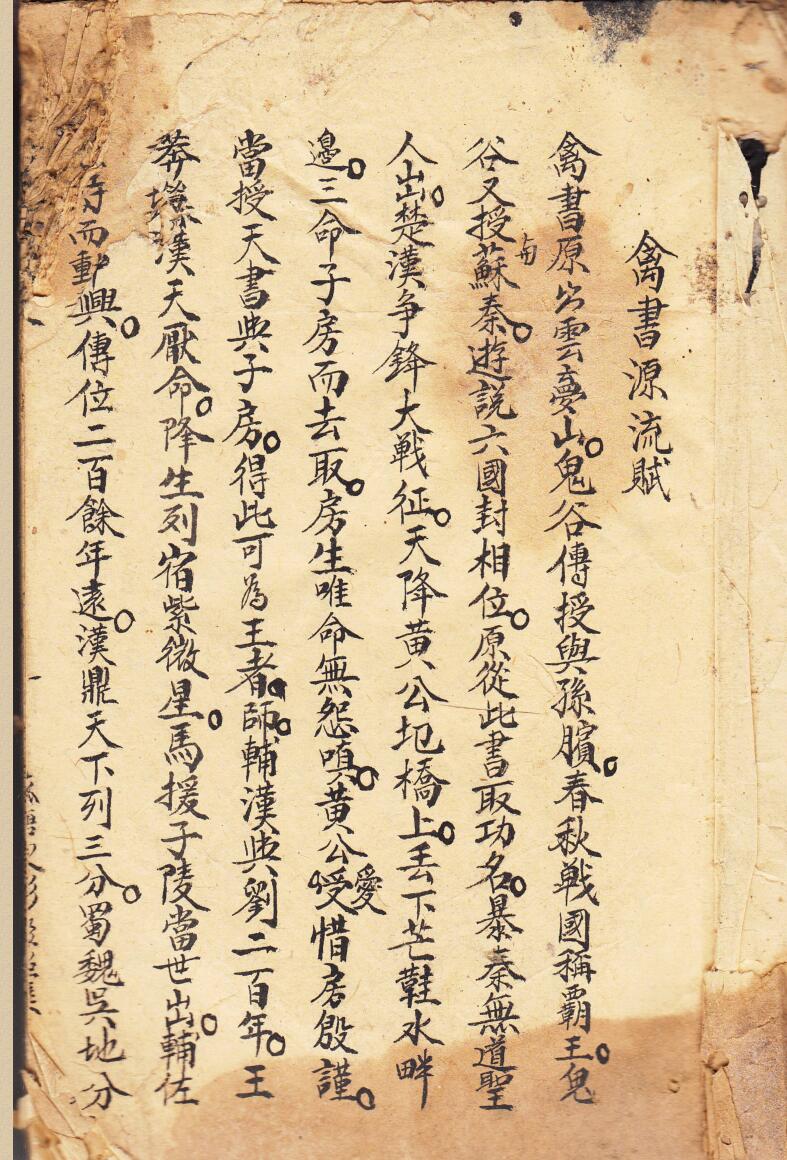 禽書源流賦
禽書原出雲夢山。鬼谷傳授與孫臏。春秋戰國稱霸王。鬼
谷又授與蘇秦。遊說六國封相位。原從此書取功名。暴秦無道聖
人出。楚漢争鋒大戰征。天降黄公圯橋上。丢下芒鞋水畔
邊。三命子房而去取。房生唯命無怨嗔。黄公愛惜房殷謹。
當授天書與子房。得此可為王者師。輔漢興劉二百年。王
莽 漢天厭命。降生列宿紫微星。馬援子陵當世出。輔佐
而動興。傳位二百餘年遠。漢鼎天下列三分。蜀魏吳地分